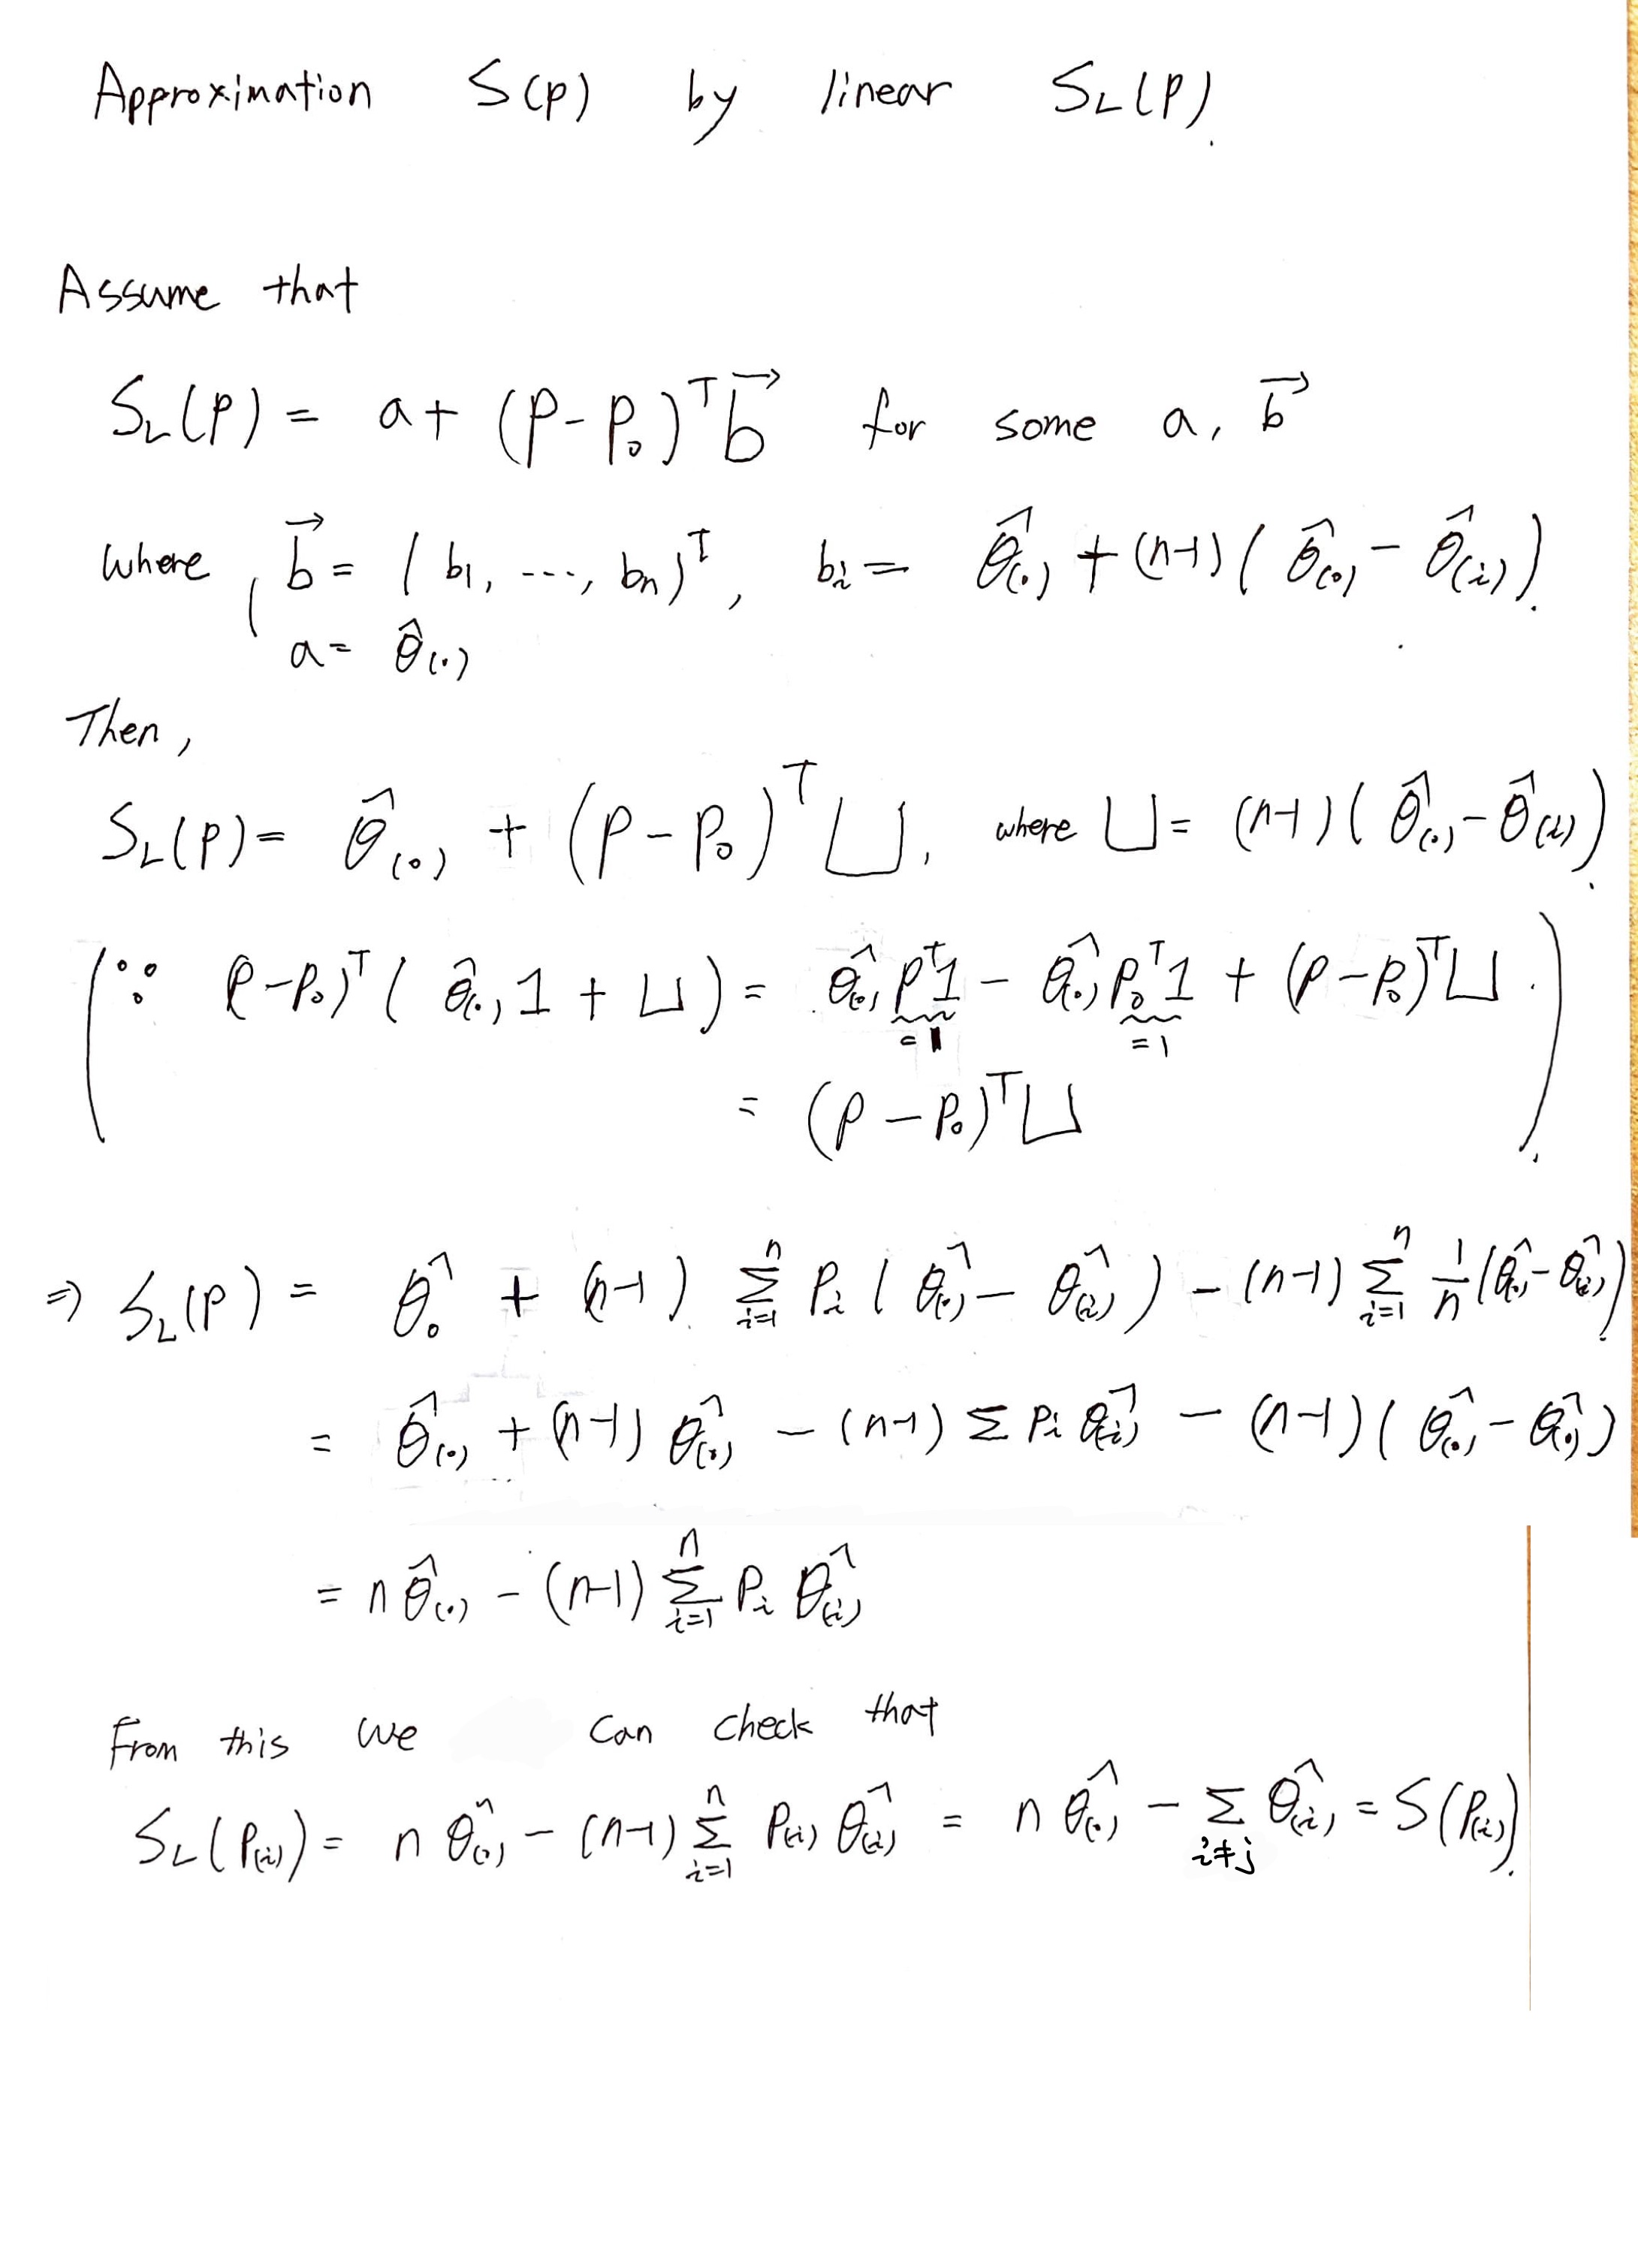 Approximation S(p) by linear S_L(p).
Assume that
S_L(p) = a + (p - p_0)^T \vec{b} for some a, \vec{b}
where, \vec{b} = (b_1, ---, b_n)^T, b_i = \hat{θ}_{(·)} + (n-1)(\hat{θ}_{(·)} - \hat{θ}_{(i)}).
a = \hat{θ}_{(·)}
Then,
S_L(p) = \hat{θ}_{(·)} + (p - p_0)^T U, where U = (n-1)(\hat{θ}_{(·)} - \hat{θ}_{(i)}).
(∵ p - p_0)^T (\hat{θ}_{(·)} 1 + U) = \hat{θ}_{(·)} p^T 1 - \hat{θ}_{(·)} p_0^T 1 + (p - p_0)^T U.
= 1 = 1
= (p - p_0)^T U )
⇒ S_L(p) = \hat{θ}_· + (n-1) Σ_{i=1}^n p_i (\hat{θ}_{(·)} - \hat{θ}_{(i)}) - (n-1) Σ_{i=1}^n 1/n (\hat{θ}_{(·)} - \hat{θ}_{(i)}).
= \hat{θ}_{(·)} + (n-1) \hat{θ}_{(·)} - (n-1) Σ p_i \hat{θ}_{(i)} - (n-1)(\hat{θ}_{(·)} - \hat{θ}_{(·)})
= n \hat{θ}_{(·)} - (n-1) Σ_{i=1}^n p_i \hat{θ}_{(i)}
From this we can check that
S_L(p_{(i)}) = n \hat{θ}_{(·)} - (n-1) Σ_{i=1}^n p_{(i)} \hat{θ}_{(i)} = n \hat{θ}_{(·)} - Σ_{i≠j} \hat{θ}_{(i)} = S(p_{(i)}).